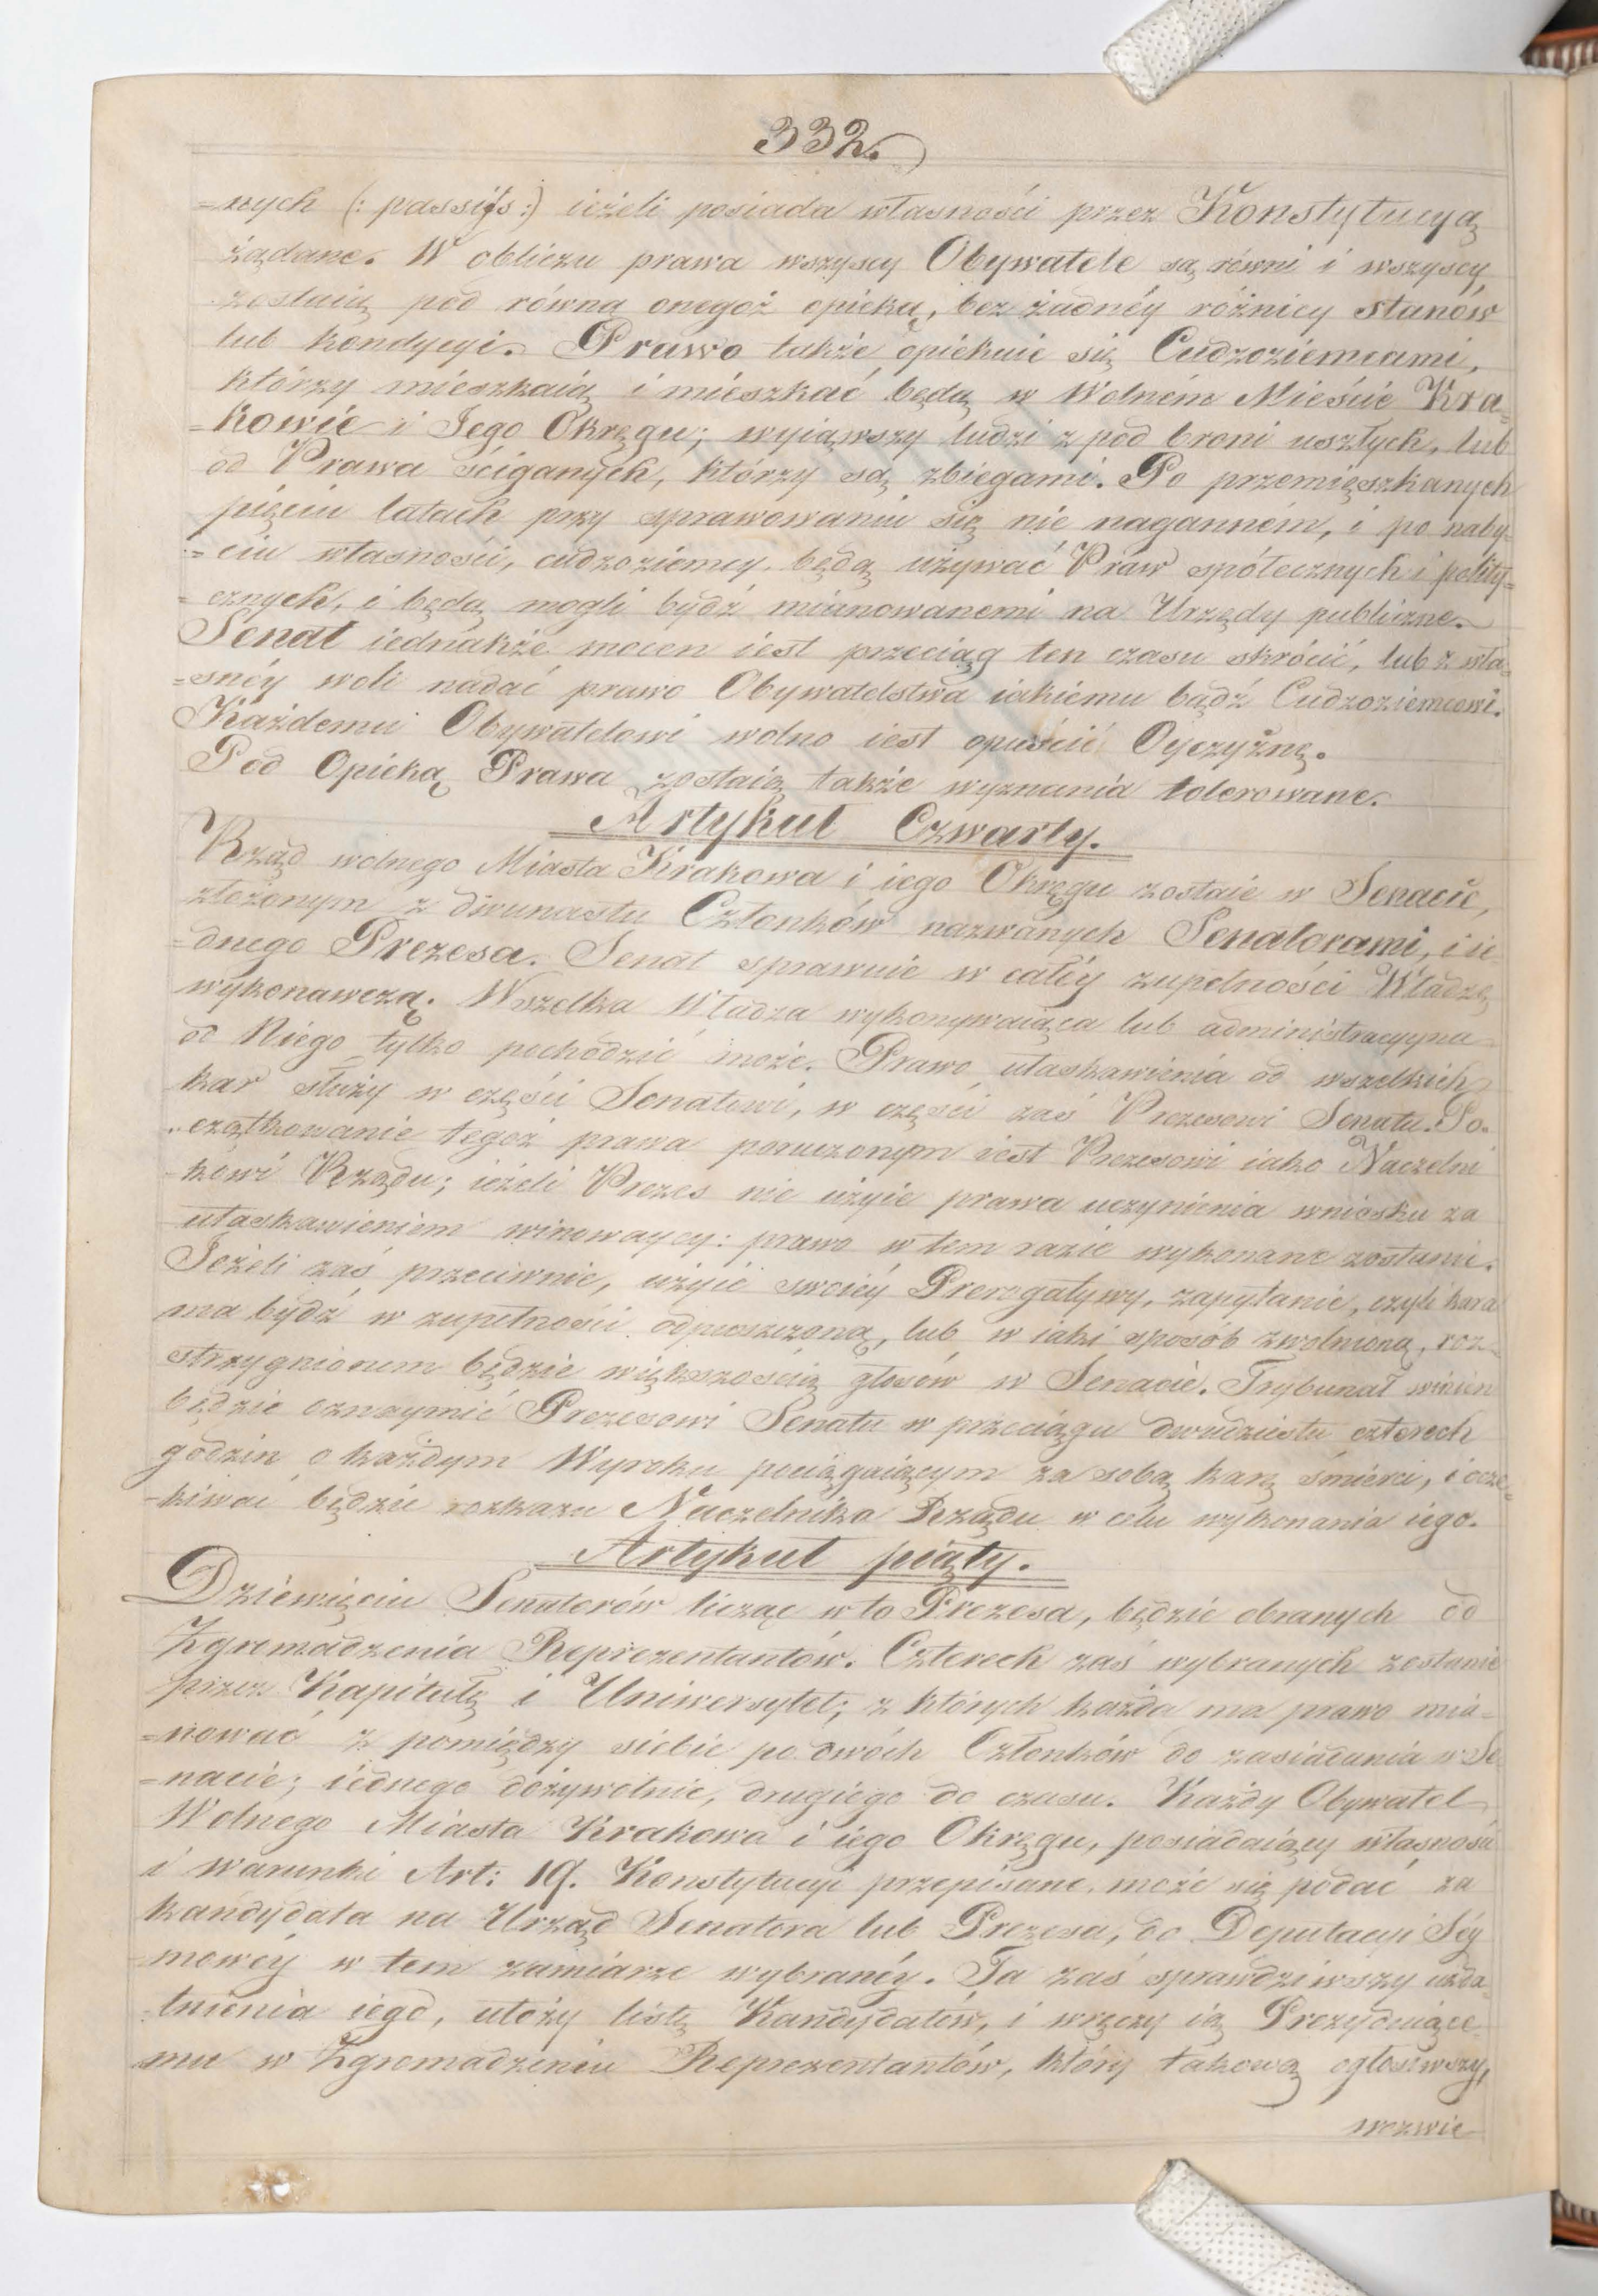 332.
=nych (: passifs :) ieżeli posiada własności przez Konstytucyą
żądane. W obliczu prawa wszyscy Obywatele są równi i wszyscy
zostaią pod równą onegoż opieką, bez żadnéy różnicy stanów
lub kondycyi. Prawo także opiekuie się Cudzoziemcami,
którzy mieszkaią i mieszkać będą w Wolném Mieście Kra=
=kowie i Jego Okręgu; wyiąwszy ludzi z pod broni uszłych, lub
od Prawa ściganych, którzy są zbiegami. Po przemięszkanych
pięciu latach przy sprawowaniu się nie naganném, i po naby=
=ciu własności, cudzoziemcy będą używać Praw spółecznych i polity=
=cznych, i będą mogli bydź mianowanemi na Urzędy publiczne.
Senat iednakże mocen iest przeciąg ten czasu skrócić, lub z wła=
=snéy woli nadać prawo Obywatelstwa iakiemu bądź Cudzoziemcowi.
Każdemu Obywatelowi wolno iest opuścić Oyczyznę.
Pod Opieką Prawa zostaią także wyznania tolerowane.
Artykuł Czwarty.
Rząd wolnego Miasta Krakowa i iego Okręgu zostaie w Senacie,
złożonym z dwunastu Członków nazwanych Senatorami, i ie=
=dnego Prezesa. Senat sprawuie w całéy zupełności Władzę
wykonawczą. Wszelka Władza wykonywaiąca lub administracyyna
od Niego tylko pochodzić może. Prawo ułaskawienia od wszelkich
kar służy w części Senatowi, w części zaś Prezesowi Senatu. Po=
=czątkowanie tegoż prawa poruczonym iest Prezesowi iako Naczelni
=kowi Rządu; ieżeli Prezes nie użyie prawa uczynienia wniosku za
ułaskawieniem winowaycy: prawo w tem razie wykonane zostanie.
Jeżeli zaś przeciwnie, użyie swoiéy Prerogatywy, zapytanie, czyli kara
ma bydź w zupełności odpuszczoną, lub w iaki sposób zwolnioną, roz=
strzygnionem będzie większością głosów w Senacie. Trybunał winien
będzie oznaymić Prezesowi Senatu w przeciągu dwudziestu czterech
godzin o każdym Wyroku pociągaiącym za sobą karę śmierci, i ocze=
=kiwać będzie rozkazu Naczelnika Rządu w celu wykonania iego.
Artykuł piąty.
Dziewięciu Senatorów licząc w to Prezesa, będzie obranych od
Zgromadzenia Reprezentantów. Czterech zaś wybranych zostanie
przez Kapitułę i Uniwersytet; z których każda ma prawo mia=
=nować z pomiędzy siebie po dwóch Członków do zasiadania w Se=
=nacie; iednego dożywotnie, drugiego do czasu. Każdy Obywatel
Wolnego Miasta Krakowa i iego Okręgu, posiadaiący własność
i warunki Art: 19. Konstytucyi przepisane, może się podać za
kandydata na Urząd Senatora lub Prezesa, do Deputacyi Séy
=mowéy w tem zamiarze wybranéy. Ta zaś sprawdziwszy uzda=
=tnienia iego, ułoży listę Kandydatów, i wręczy ią Prezyduiące=
=mu w Zgromadzeniu Reprezentantów, który takową ogłosiwszy,
wezwie